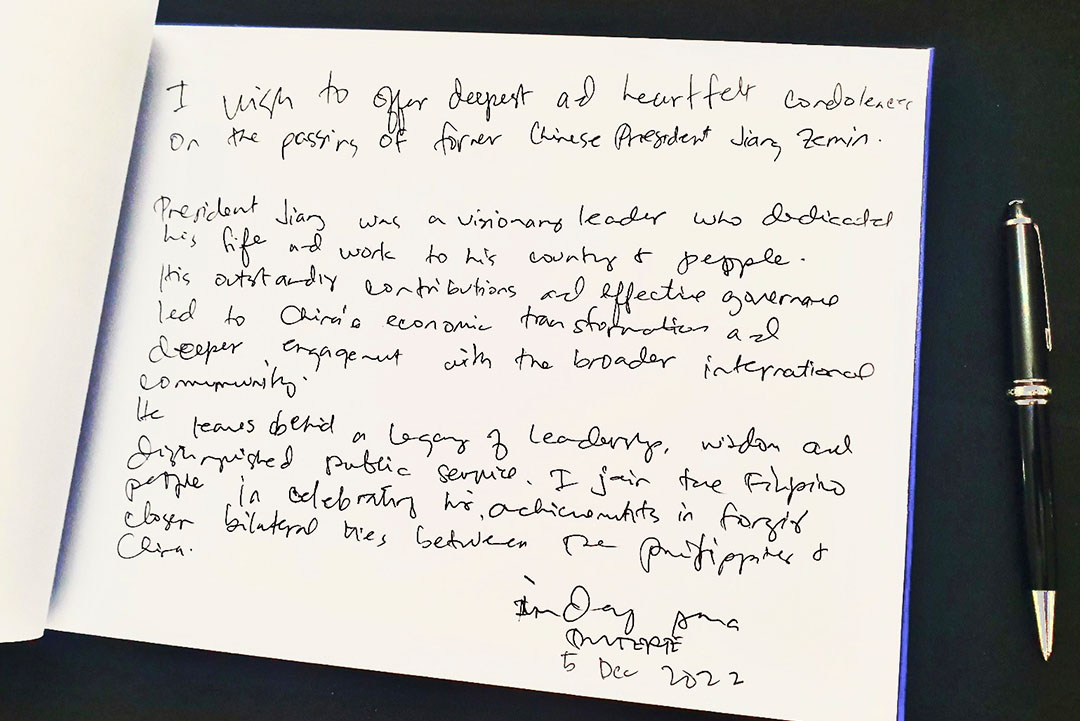 I wish to offer deepest and heartfelt condolences
on the passing of former Chinese President Jiang Zemin.
President Jiang was a visionary leader who dedicated
his life and work to his country & people.
His outstanding contributions and effective governance
led to China's economic transformation and
deeper engagement with the broader international
community.
He leaves behind a legacy of leadership, wisdom and
distinguished public service. I join the Filipino
people in celebrating his achievements in forging
closer bilateral ties between the Philippines &
China.
Inday Sara
DUTERTE
5 Dec 2022